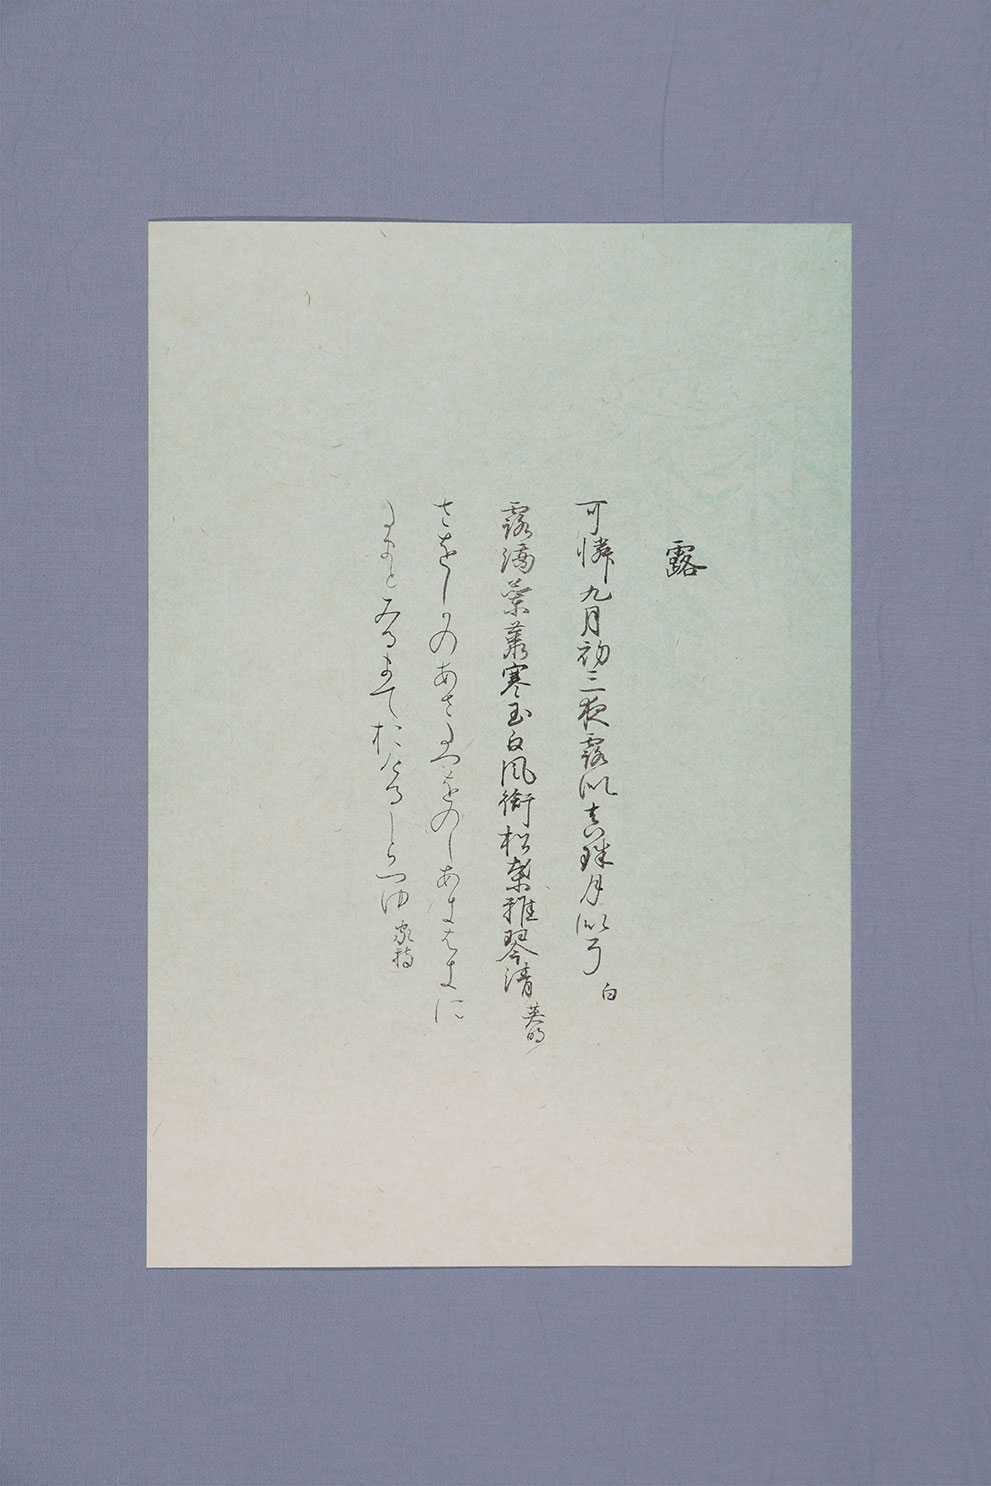 露
可憐九月初三夜露似真珠月似弓 白
露滴蘭叢寒玉白風銜松葉雅琴清 英明
さをしかのあさたつをのゝあきはきに
たまとみるまておけるしらつゆ 家持